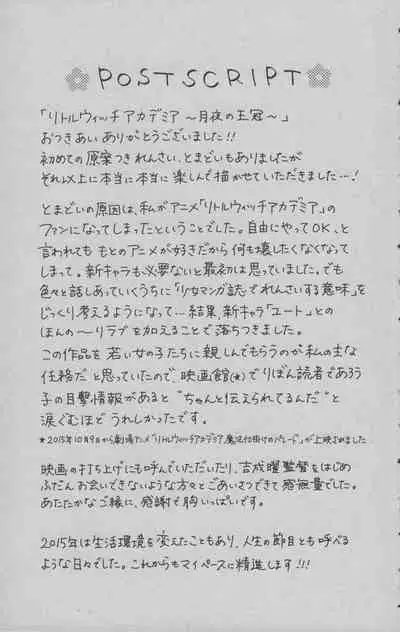 POSTSCRIPT
「リトルウィッチアカデミア〜月夜の王冠〜」
おつきあいありがとうございました!!
初めての原案つきれんさい、とまどいもありましたが
それ以上に本当に本当に楽しんで描かせていただきました…!
とまどいの原因は、私がアニメ「リトルウィッチアカデミア」の
ファンになってしまったということでした。自由にやってOK、と
言われても もとのアニメが好きだから何も壊したくなくなって
しまって。新キャラも必要ないと最初は思っていました。でも
色々と話しあっていくうちに「少女マンガ誌でれんさいする意味」を
じっくり考えるようになって…結果、新キャラ「ユート」との
ほんの〜りラブを加えることで落ちつきました。
この作品を若い女の子たちに親しんでもらうのが私の主な
任務だと思っていたので、映画館(*)でりぼん読者であろう
子の目撃情報があると"ちゃんと伝えられてるんだ"と
涙ぐむほどうれしかったです。
*2015年10月9日から劇場アニメ「リトルウィッチアカデミア 魔法仕掛けのパレード」が上映されました
映画の打ち上げにも呼んでいただいたり、吉成曜監督をはじめ
ふだんお会いできないような方々とごあいさつできて感無量でした。
あたたかなご縁に、感謝で胸いっぱいです。
2015年は生活環境を変えたこともあり、人生の節目とも呼べる
ような日々でした。これからもマイペースに精進します!!!